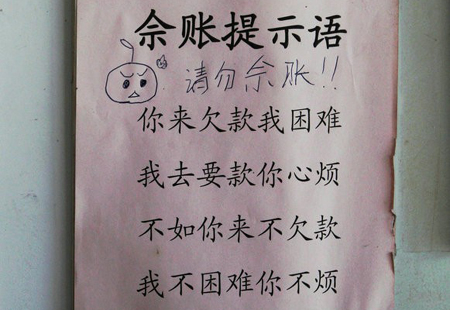 佘账提示语
请勿佘账!!
你来欠款我困难
我去要款你心烦
不如你来不欠款
我不困难你不烦